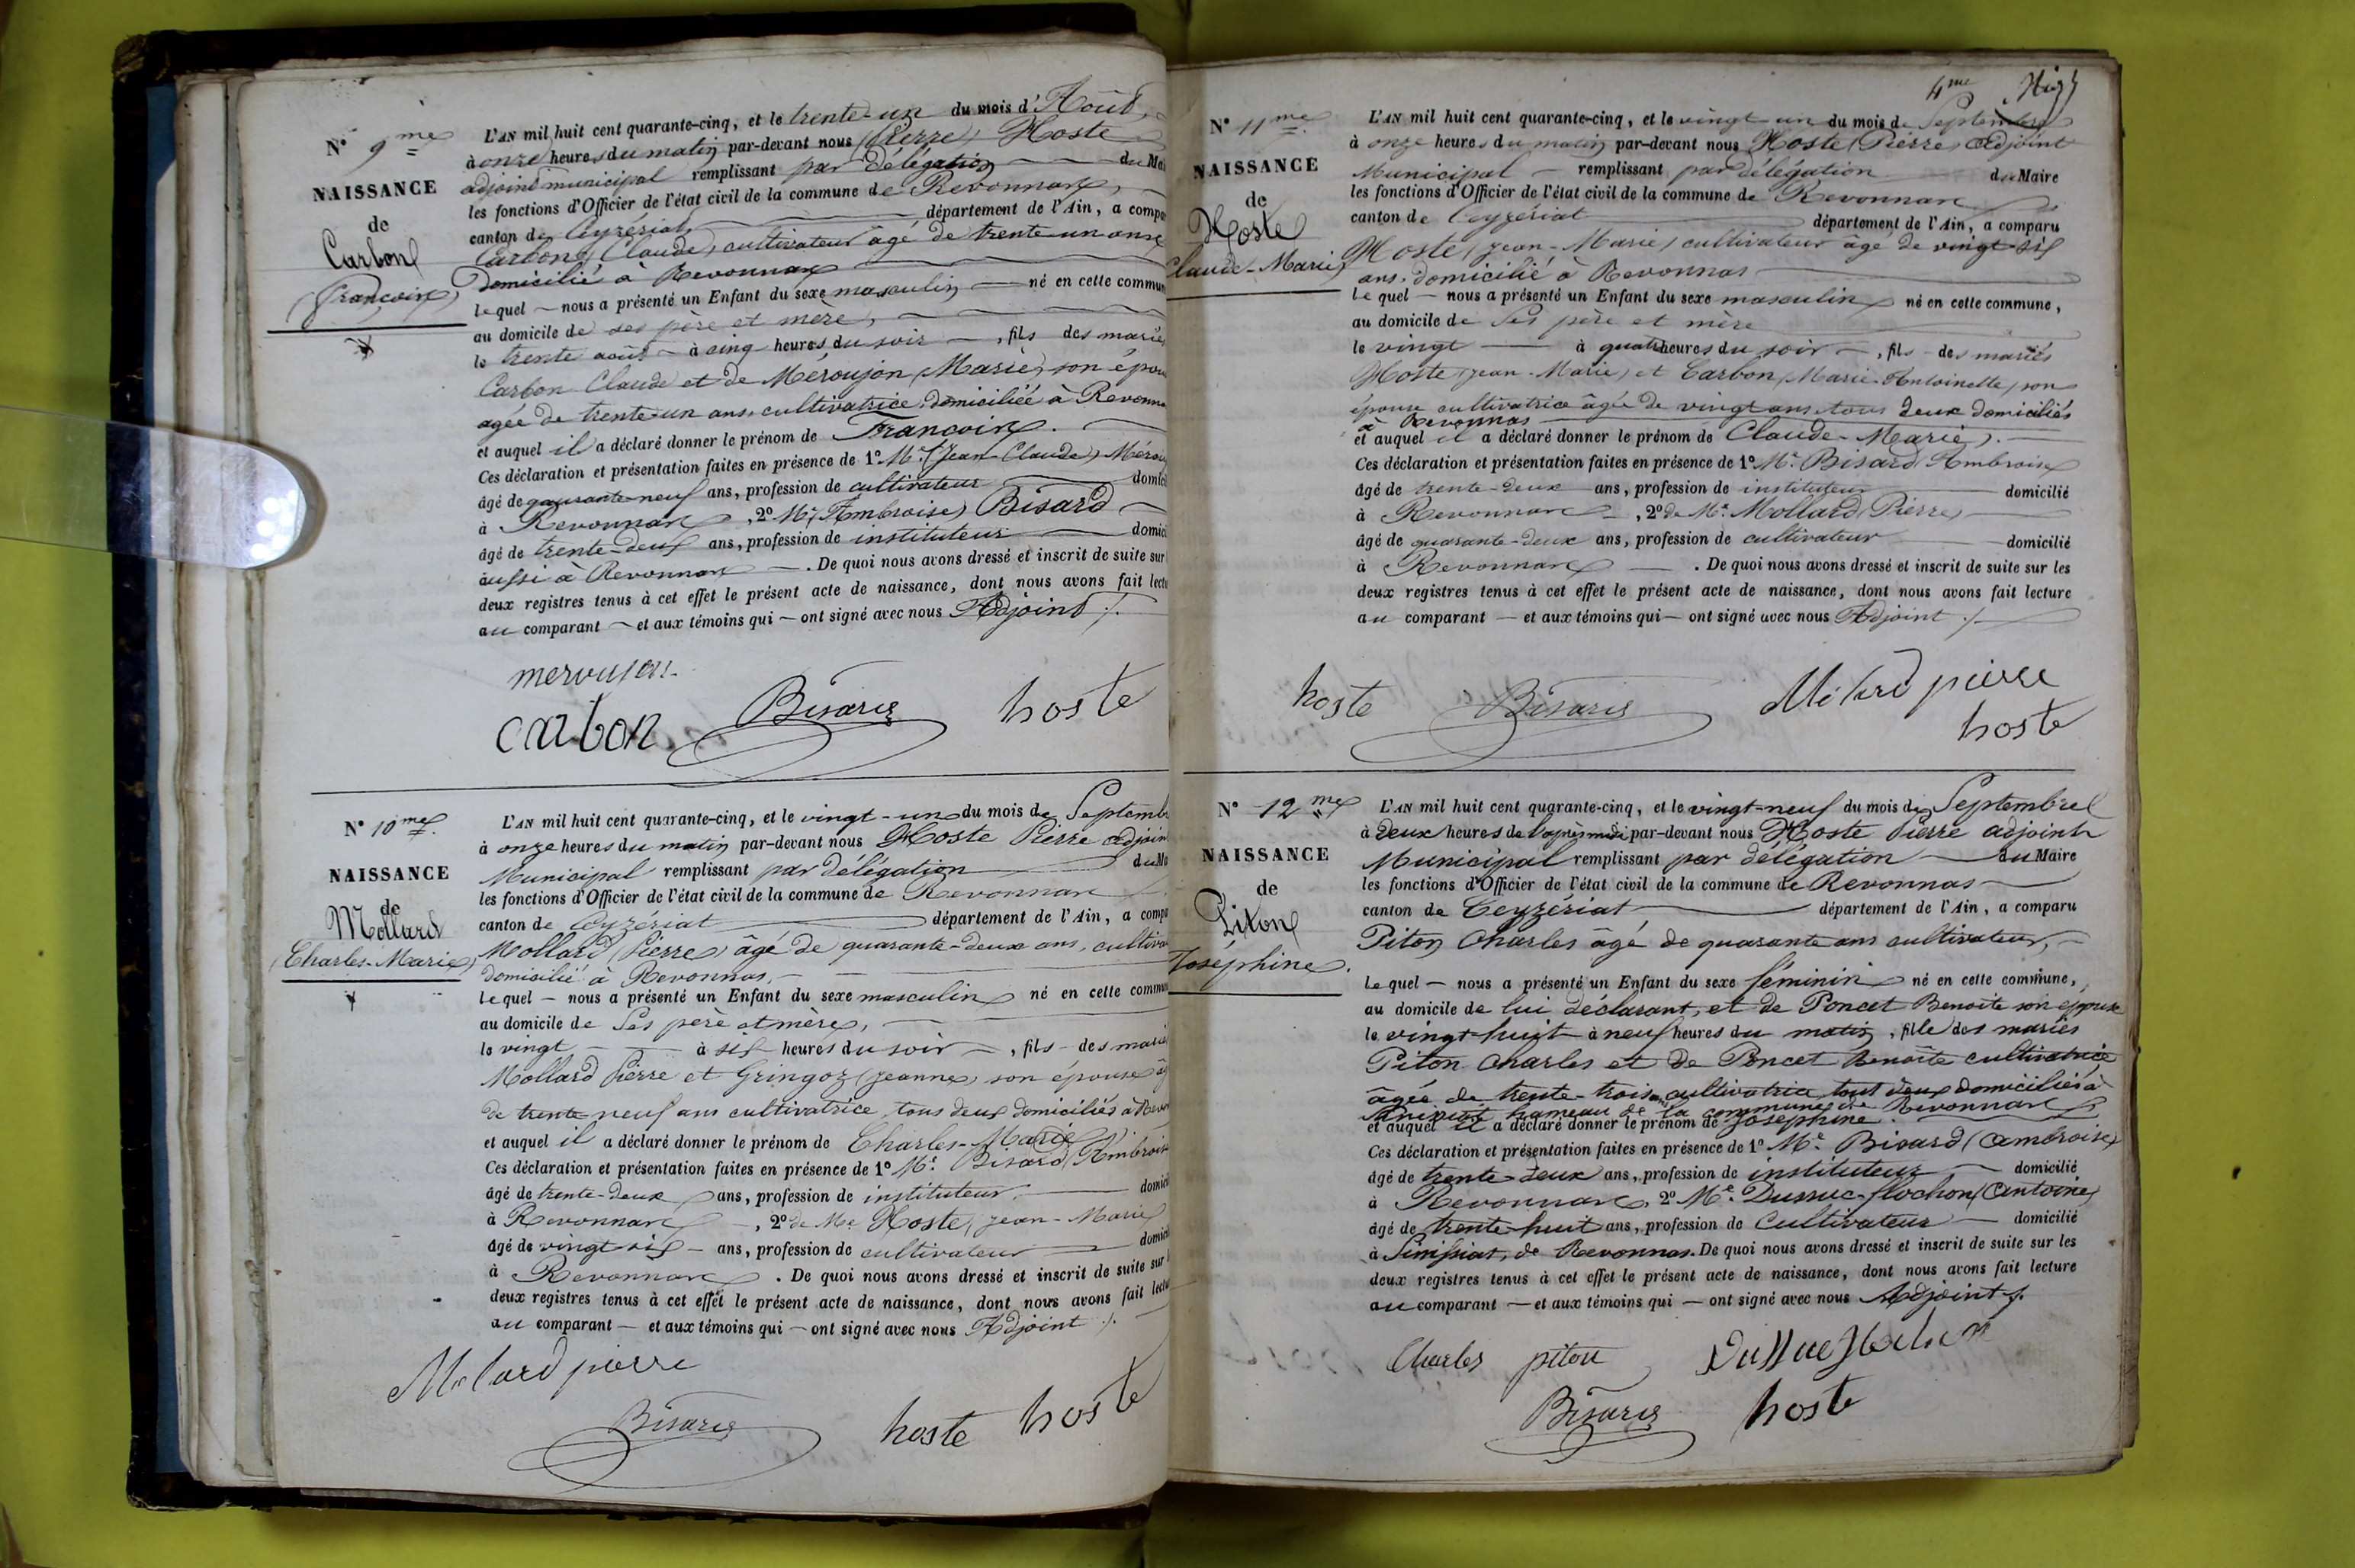 N° 9me
NAISSANCE
de
Carbon
(François)
L'AN mil huit cent quarante-cinq, et le trente-un du mois d'Août,
à onze heures du matin par-devant nous (Pierre) Hoste
adjoint municipal remplissant par délégation du Mai
les fonctions d'Officier de l'état civil de la commune de Revonnas,
canton de Ceyzériat département de l'Ain, a compa
Carbon (Claude) cultivateur âgé de trente-un ans
Domicilié à Revonnas
lequel — nous a présenté un Enfant du sexe masculin né en cette commun
au domicile de ses père et mère,
le trente août à cinq heures du soir —, fils des mariés
Carbon Claude et de Méroujon (Marie) son épou
agée de trente-un ans, cultivatrice, domiciliée à Revonna
et auquel il a déclaré donner le prénom de François.
Ces déclaration et présentation faites en présence de 1° Mr (Jean Claude) Mérou
âgé de quarante-neuf ans, profession de cultivateur domici
à Revonnas, 2° Mr (Ambroise) Bisard
âgé de trente-deux ans, profession de instituteur domici
aussi à Revonnas —. De quoi nous avons dressé et inscrit de suite sur
deux registres tenus à cet effet le présent acte de naissance, dont nous avons fait lectu
au comparant — et aux témoins qui — ont signé avec nous Adjoint /.
meroujon
carbon Bisard hoste
N° 10me
NAISSANCE
de
Mollard
(Charles-Marie)
L'AN mil huit cent quarante-cinq, et le vingt-un du mois de Septemb
à onze heures du matin par-devant nous Hoste Pierre adjoin
Municipal remplissant par délégation du Ma
les fonctions d'Officier de l'état civil de la commune de Revonnas
canton de Ceyzériat département de l'Ain, a compa
Mollard (Pierre) âgé de quarante-deux ans, cultiva
domicilié à Revonnas,
lequel — nous a présenté un Enfant du sexe masculin né en cette commun
au domicile de Ses père et mère,
le vingt — à six heures du soir —, fils des mariés
Mollard Pierre et Gringoz (Jeanne) son épouse âg
de trente-neuf ans cultivatrice, tous deux domiciliés à Revon
et auquel il a déclaré donner le prénom de Charles-Marie).
Ces déclaration et présentation faites en présence de 1° Mr. Bisard (Ambroise
âgé de trente-deux ans, profession de instituteur domici
à Revonnas —, 2° de Mr Hoste (Jean-Marie
âgé de vingt six — ans, profession de cultivateur domici
à Revonnas. De quoi nous avons dressé et inscrit de suite sur
deux registres tenus à cet effet le présent acte de naissance, dont nous avons fait lectu
au comparant — et aux témoins qui — ont signé avec nous Adjoint /.
Molard pierre
Bisard hoste hoste
4me
N° 11me
NAISSANCE
de
Hoste
Claude-Marie
L'AN mil huit cent quarante-cinq, et le vingt un du mois de Septembre
à onze heures du matin par-devant nous Hoste (Pierre) Adjoint
Municipal — remplissant par délégation du Maire
les fonctions d'Officier de l'état civil de la commune de Revonnas
canton de Ceyzériat département de l'Ain, a comparu
Hoste (Jean-Marie) cultivateur âgé de vingt-six
ans, domicilié à Revonnas
lequel — nous a présenté un Enfant du sexe masculin né en cette commune,
au domicile de Ses père et mère
le vingt — à quatre heures du soir —, fils des mariés
Hoste (Jean-Marie) et Carbon (Marie-Antoinette) son
épouse cultivatrice âgée de vingt ans, tous deux domiciliés
à Revonnas
et auquel il a déclaré donner le prénom de Claude-Marie).
Ces déclaration et présentation faites en présence de 1° Mr. Bisard (Ambroise
âgé de trente-deux ans, profession de instituteur domicilié
à Revonnas —, 2° de Mr. Mollard (Pierre)
âgé de quarante-deux ans, profession de cultivateur domicilié
à Revonnas —. De quoi nous avons dressé et inscrit de suite sur les
deux registres tenus à cet effet le présent acte de naissance, dont nous avons fait lecture
au comparant — et aux témoins qui — ont signé avec nous Adjoint /.
hoste Bisard Molard pierre
hoste
N° 12me
NAISSANCE
de
Piton
Joséphine.
L'AN mil huit cent quarante-cinq, et le vingt-neuf du mois de Septembre
à deux heures de l'après midi par-devant nous Hoste Pierre adjoint
Municipal remplissant par délégation du Maire
les fonctions d'Officier de l'état civil de la commune de Revonnas
canton de Ceyzériat département de l'Ain, a comparu
Piton Charles âgé de quarante ans cultivateur,
lequel — nous a présenté un Enfant du sexe féminin né en cette commune,
au domicile de lui déclarant, et de Poncet Benoîte son épouse
le vingt-huit à neuf heures du matin, fille des mariés
Piton Charles et de Poncet Benoîte cultivatrice
âgée de trente-trois ans cultivatrice tout deux domiciliés à
hameau de la commune de Revonnas
et auquel il a déclaré donner le prénom de Joséphine.
Ces déclaration et présentation faites en présence de 1° Mr. Bisard (Ambroise)
âgé de trente-deux ans, profession de instituteur — domicilié
à Revonnas, 2° Mr. Dussuc-flochon (Antoine)
âgé de trente-huit ans, profession de Cultivateur — domicilié
à de Revonnas. De quoi nous avons dressé et inscrit de suite sur les
deux registres tenus à cet effet le présent acte de naissance, dont nous avons fait lecture
au comparant — et aux témoins qui — ont signé avec nous Adjoint /.
Charles piton
Bisard hoste